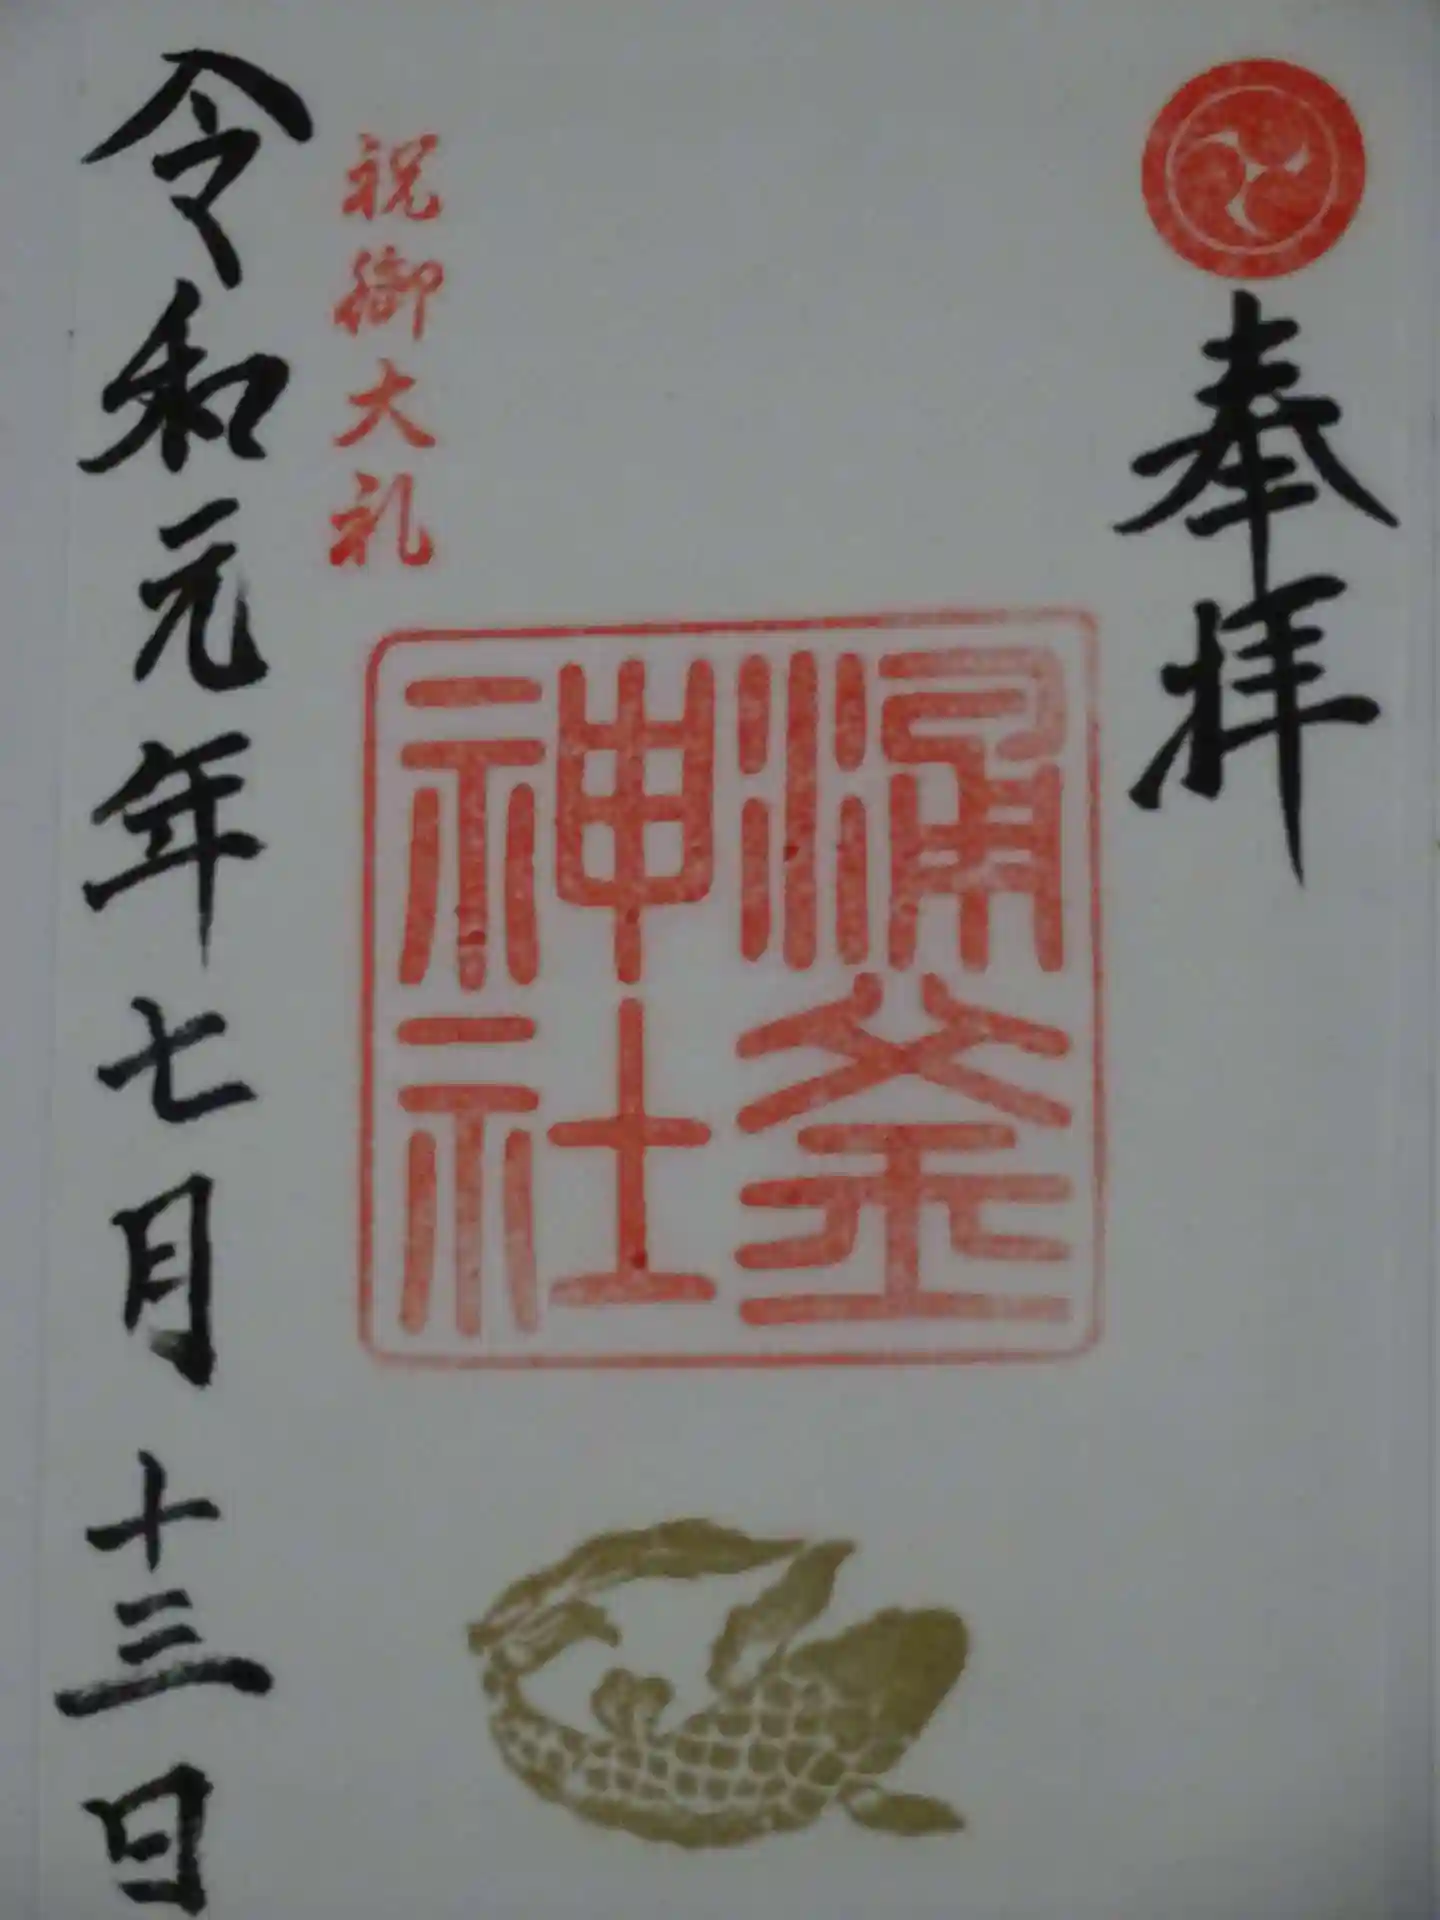 奉拝
涌釜
神社
祝御大礼
令和元年七月十三日